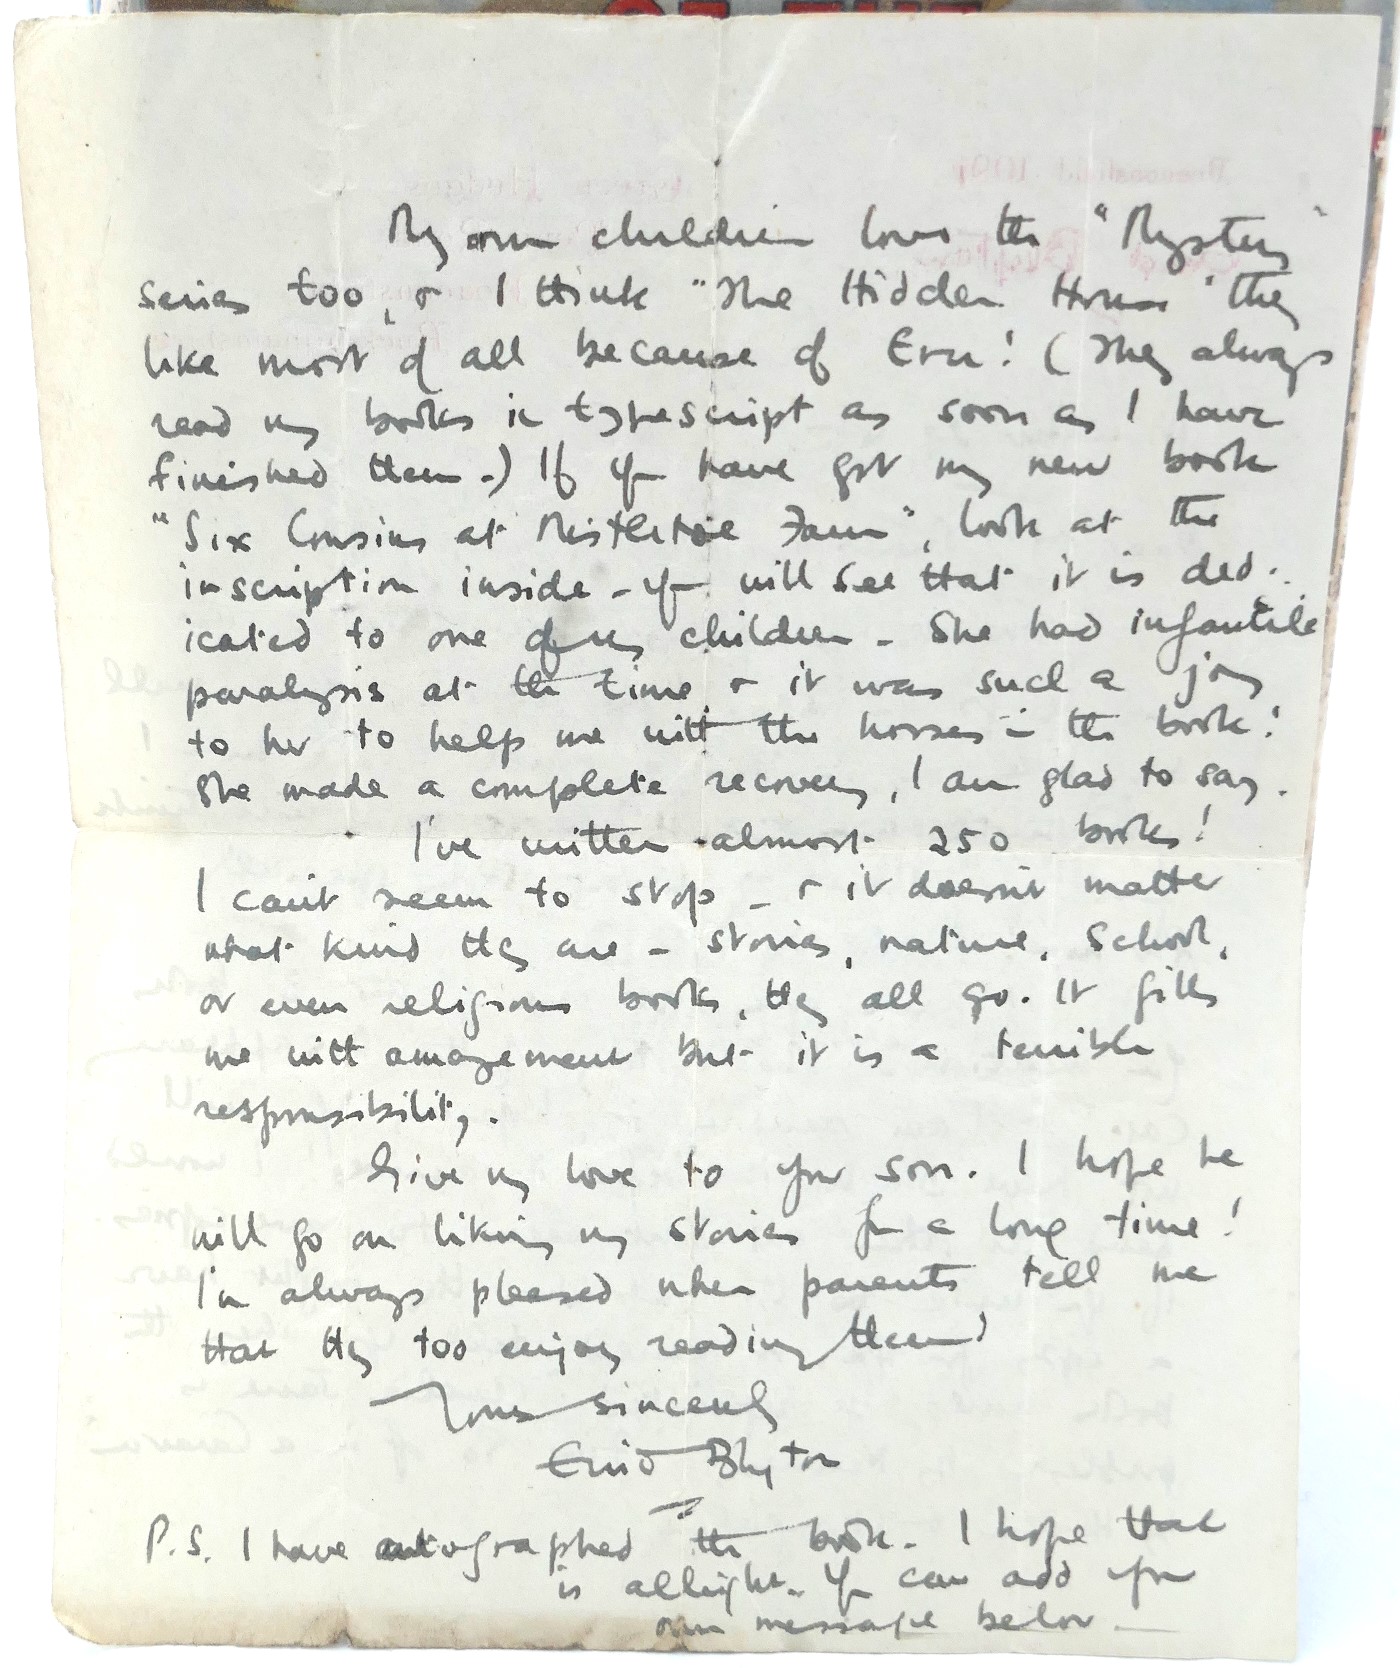 My own children love the "Mystery"
series too, & I think "The Hidden House" they
like most of all because of Ern! (They always
read my books in typescript as soon as I have
finished them.) If you have got my new book
"Six Cousins at Mistletoe Farm", look at the
inscription inside - you will see that it is ded-
icated to one of my children - She had infantile
paralysis at the time & it was such a joy
to her to help me with the horses in the book!
She made a complete recovery, I am glad to say.
I've written almost 250 books!
I can't seem to stop - & it doesn't matter
what kind they are - stories, nature, school,
or even religious books, they all go. It fills
me with amazement but it is a terrible
responsibility.
Give my love to your son. I hope he
will go on liking my stories for a long time!
I'm always pleased when parents tell me
that they too enjoy reading them!
Yours sincerely
Enid Blyton
P.S. I have autographed the book. I hope that
is allright. You can add your
own message below -